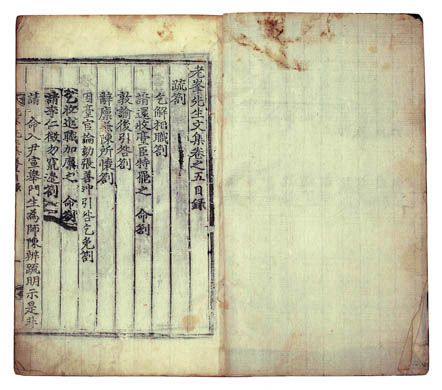 老峯先生文集卷之五目錄
疏劄
乞解相職劄
請還收臺臣特罷之 命劄
敦諭後引咎劄
辭廩兼陳所懷劄
因臺官論勘張善冲引咎乞免劄
乞收還職加廩之 命劄
請李仁徵勿竄邊劄
請 命入尹宣擧門生為師陳辨疏明示是非